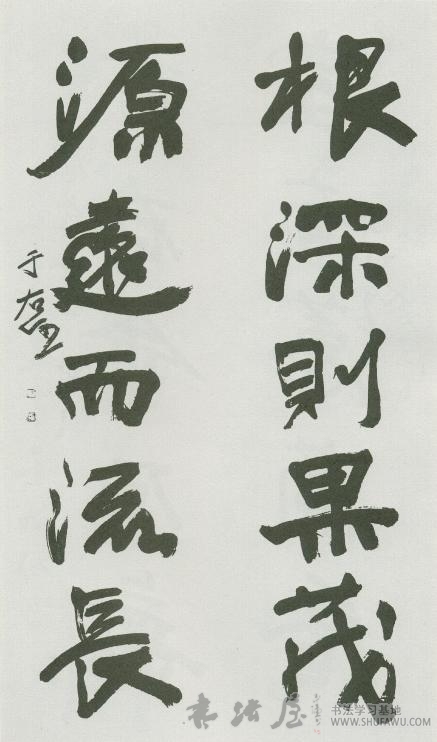 根深则果茂
源遠而流長
于右任
書法屋
书法学习基地
WWW.SHUFAWU.COM